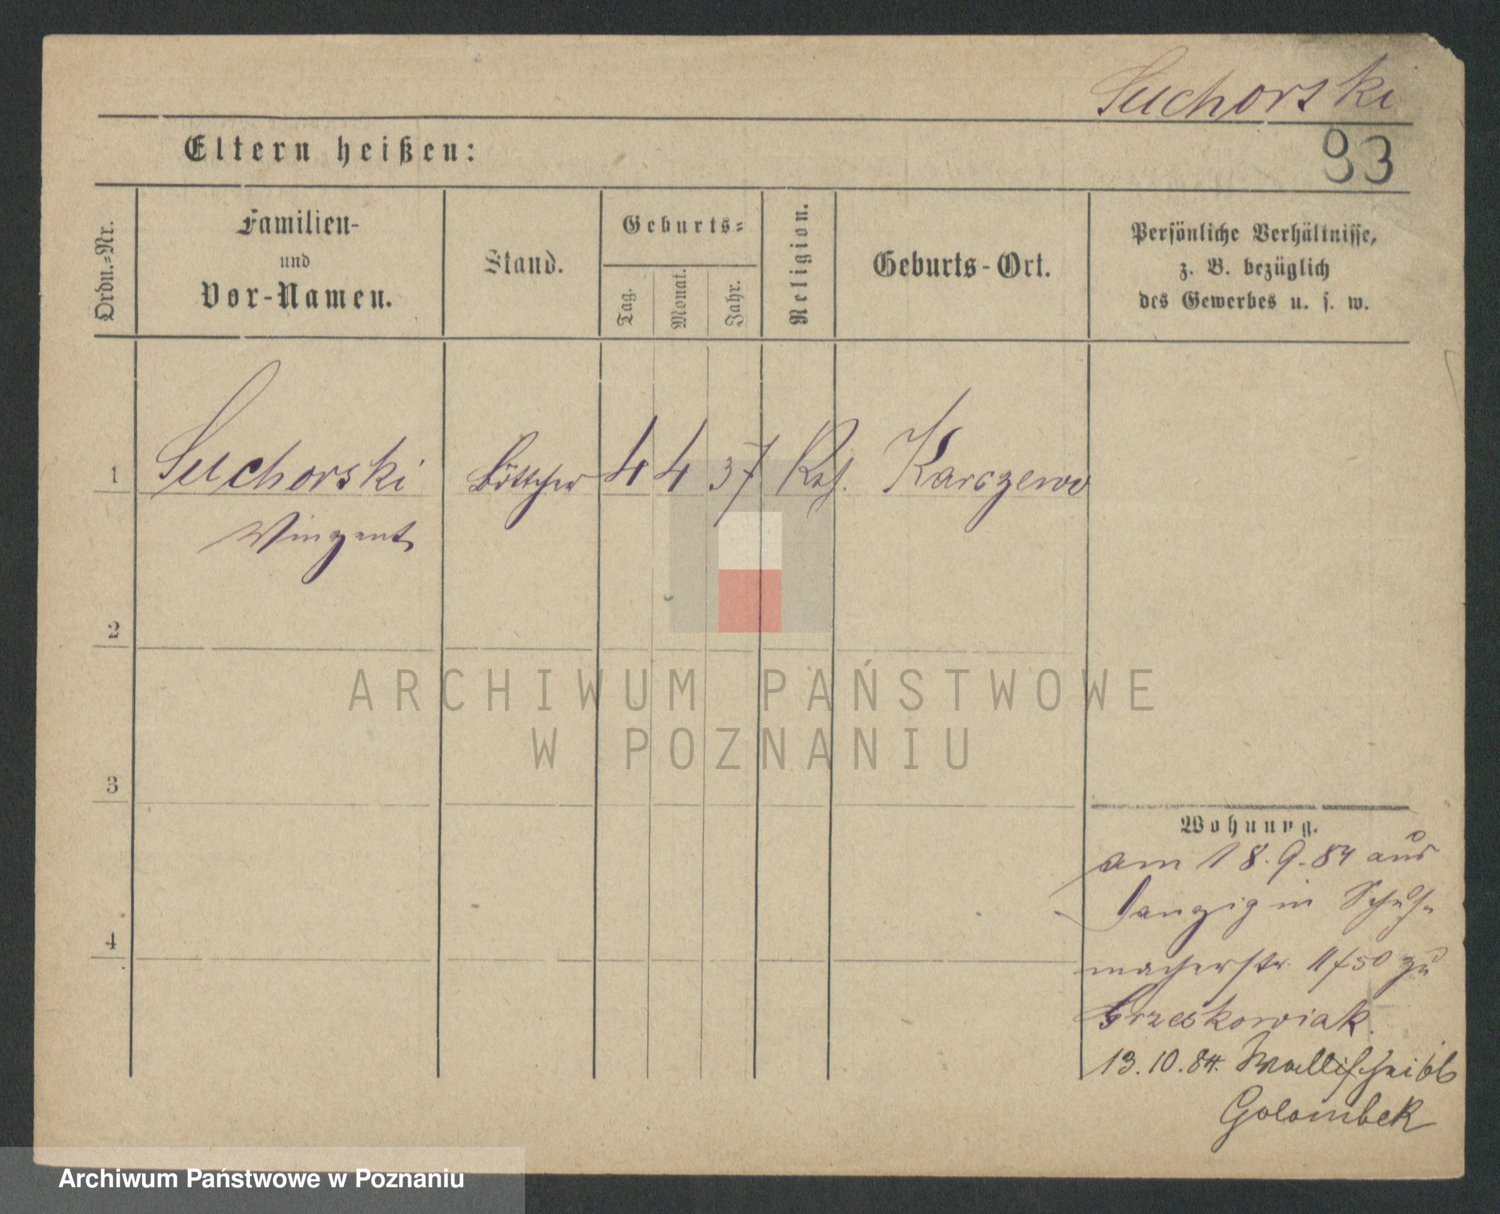 Suchorski
Eltern heißen:
93
Ordn.-Nr.
Familien-
und
Vor-Namen.
Stand.
Geburts-
Tag.
Monat.
Jahr.
Religion.
Geburts-Ort.
Persönliche Verhältnisse,
z. B. bezüglich
des Gewerbes u. s. w.
1 Suchorski Böttcher 4 4 37 Kth. Karczewo
Vinzent
2
ARCHIWUM PAŃSTWOWE
W POZNANIU
3
Wohnung.
am 18.9.84 aus
Danzig in Schuh-
macherstr. 11/50 zu
Grzeskowiak.
13.10.84. Wallischei
Golombek
4
Archiwum Państwowe w Poznaniu